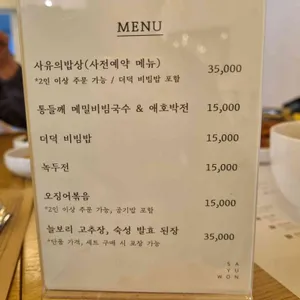 MENU
사유의밥상(사전예약 메뉴) 35,000
*2인 이상 주문 가능 / 더덕 비빔밥 포함
통들깨 메밀비빔국수 & 애호박전 15,000
더덕 비빔밥 15,000
녹두전 15,000
오징어볶음 15,000
*2인 이상 주문 가능, 공기밥 포함
늘보리 고추장, 숙성 발효 된장 35,000
*단품 가격, 세트 구매 시 포장 가능
S A
Y U
W O N